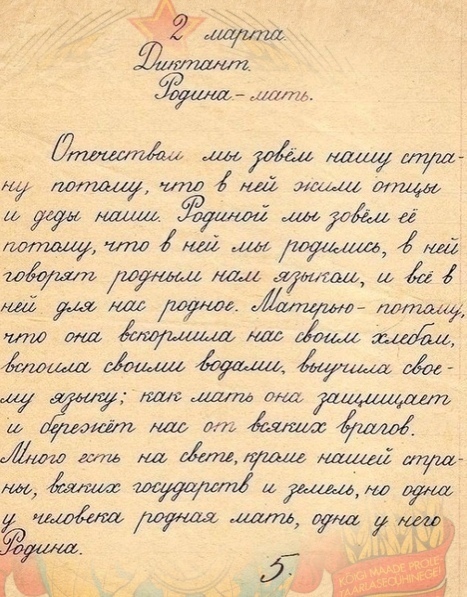 2 марта.
Диктант.
Родина-мать.
Отечеством мы зовём нашу стра-
ну потому, что в ней жили отцы
и деды наши. Родиной мы зовём её
потому, что в ней мы родились, в ней
говорят родным нам языком, и всё в
ней для нас родное. Матерью- потому,
что она вскормила нас своим хлебом,
вспоила своими водами, выучила свое-
му языку; как мать она защищает
и бережёт нас от всяких врагов.
Много есть на свете, кроме нашей стра-
ны, всяких государств и земель, но одна
у человека родная мать, одна у него
Родина.
5.
KÕIGI MAADE PROLE-
TAARLASED, ÜHINEGE!